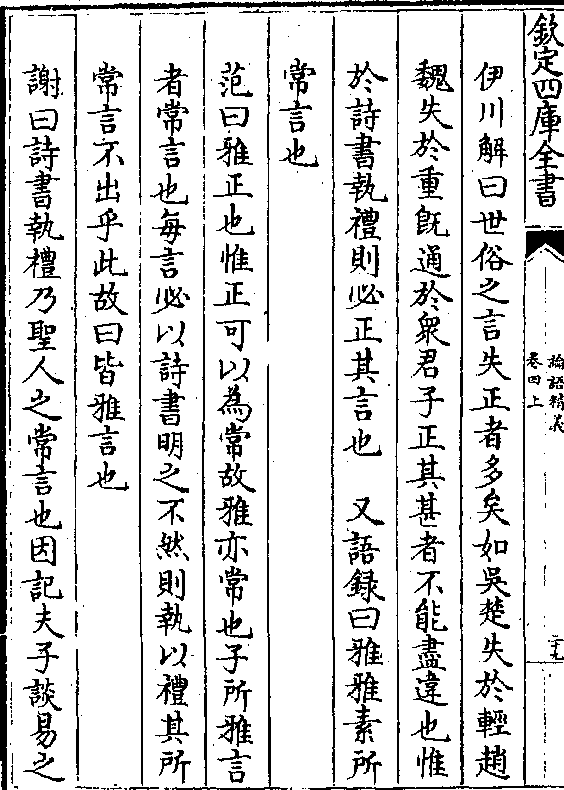 欽定四庫全書
論語精義
卷四上
二十九
伊川解曰世俗之言失正者多矣如吳楚失於輕趙
魏失於重既通於衆君子正其甚者不能盡違也惟
於詩書執禮則必正其言也　又語録曰雅雅素所
常言也
范曰雅正也惟正可以為常故雅亦常也子所雅言
者常言也每言必以詩書明之不然則執以禮其所
常言不出乎此故曰皆雅言也
謝曰詩書執禮乃聖人之常言也因記夫子談易之